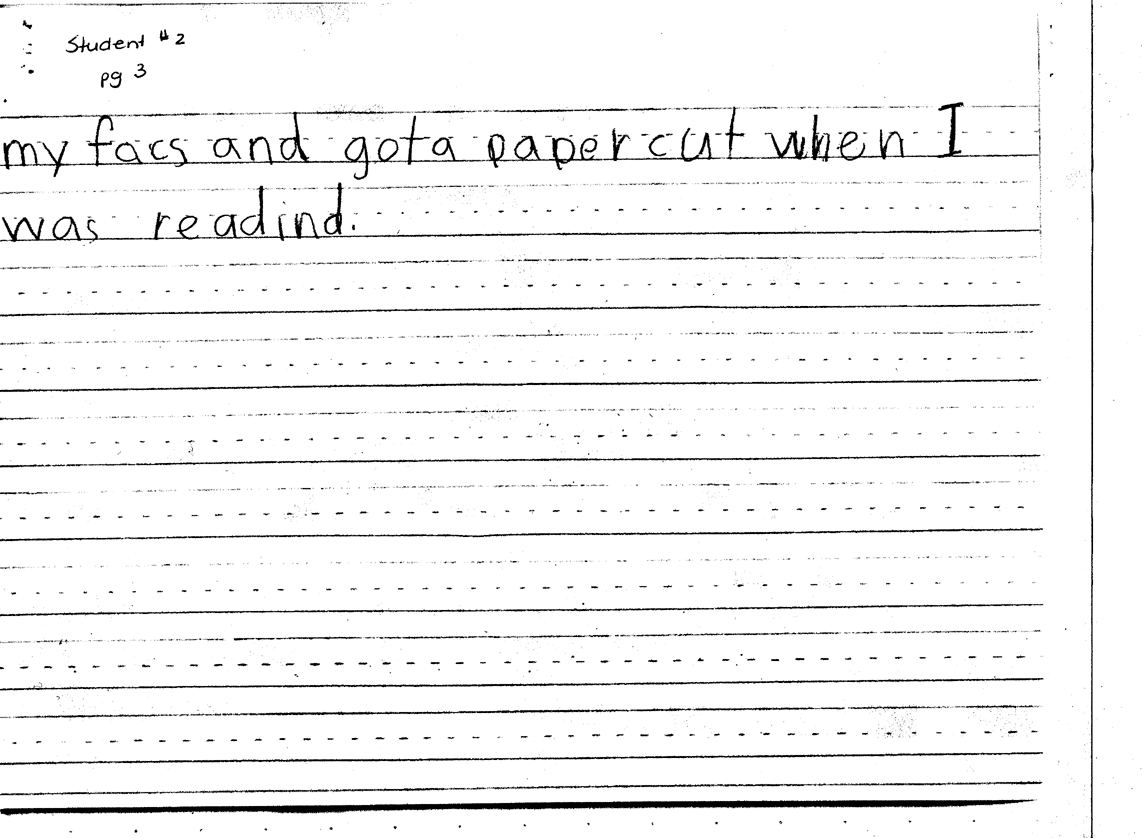 Student #2
pg 3
my facs and got a paper cut when I
was readind.